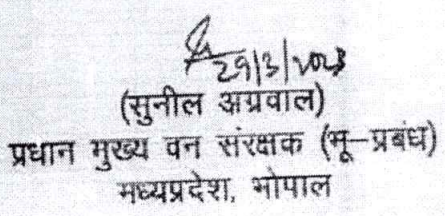 29/3/2023
(सुनील अग्रवाल)
प्रधान मुख्य वन संरक्षक (भू–प्रबंध)
मध्यप्रदेश, भोपाल